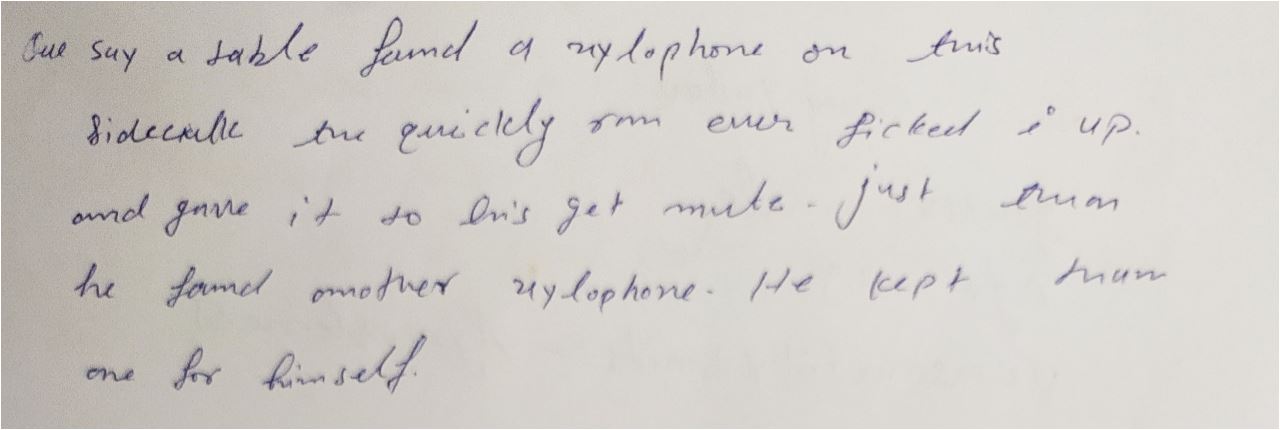 Sue say a table found a xylophone on this
Sidecwalk the quickly ran over ficked i up.
and gave it to his get mute. just than
he found another xylophone. He kept tham
one for himself.